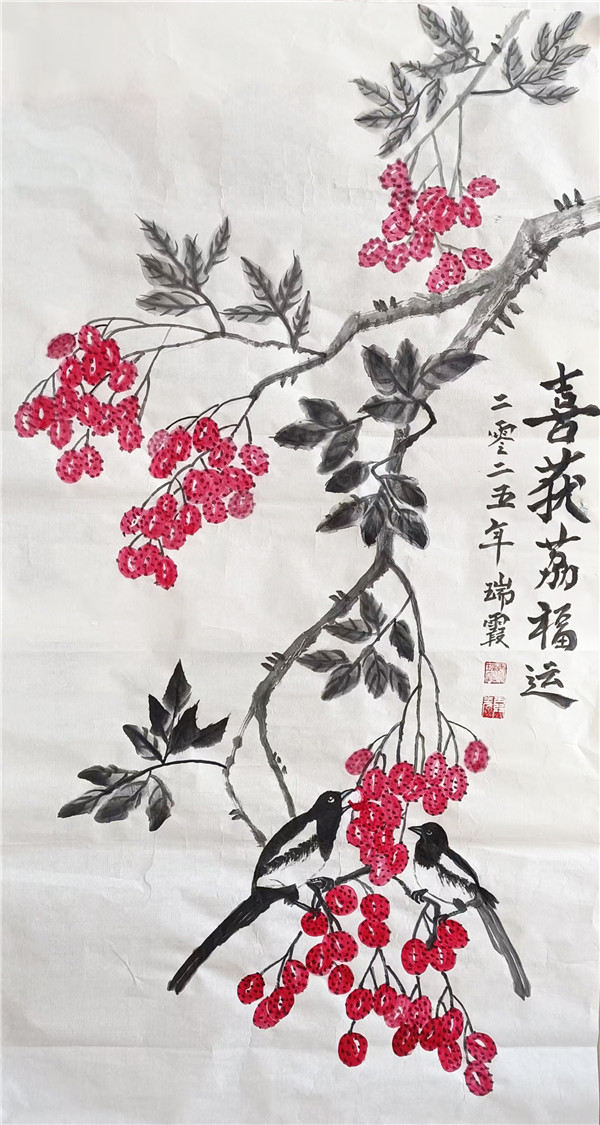 喜获荔福运
二零二五年 瑞霞